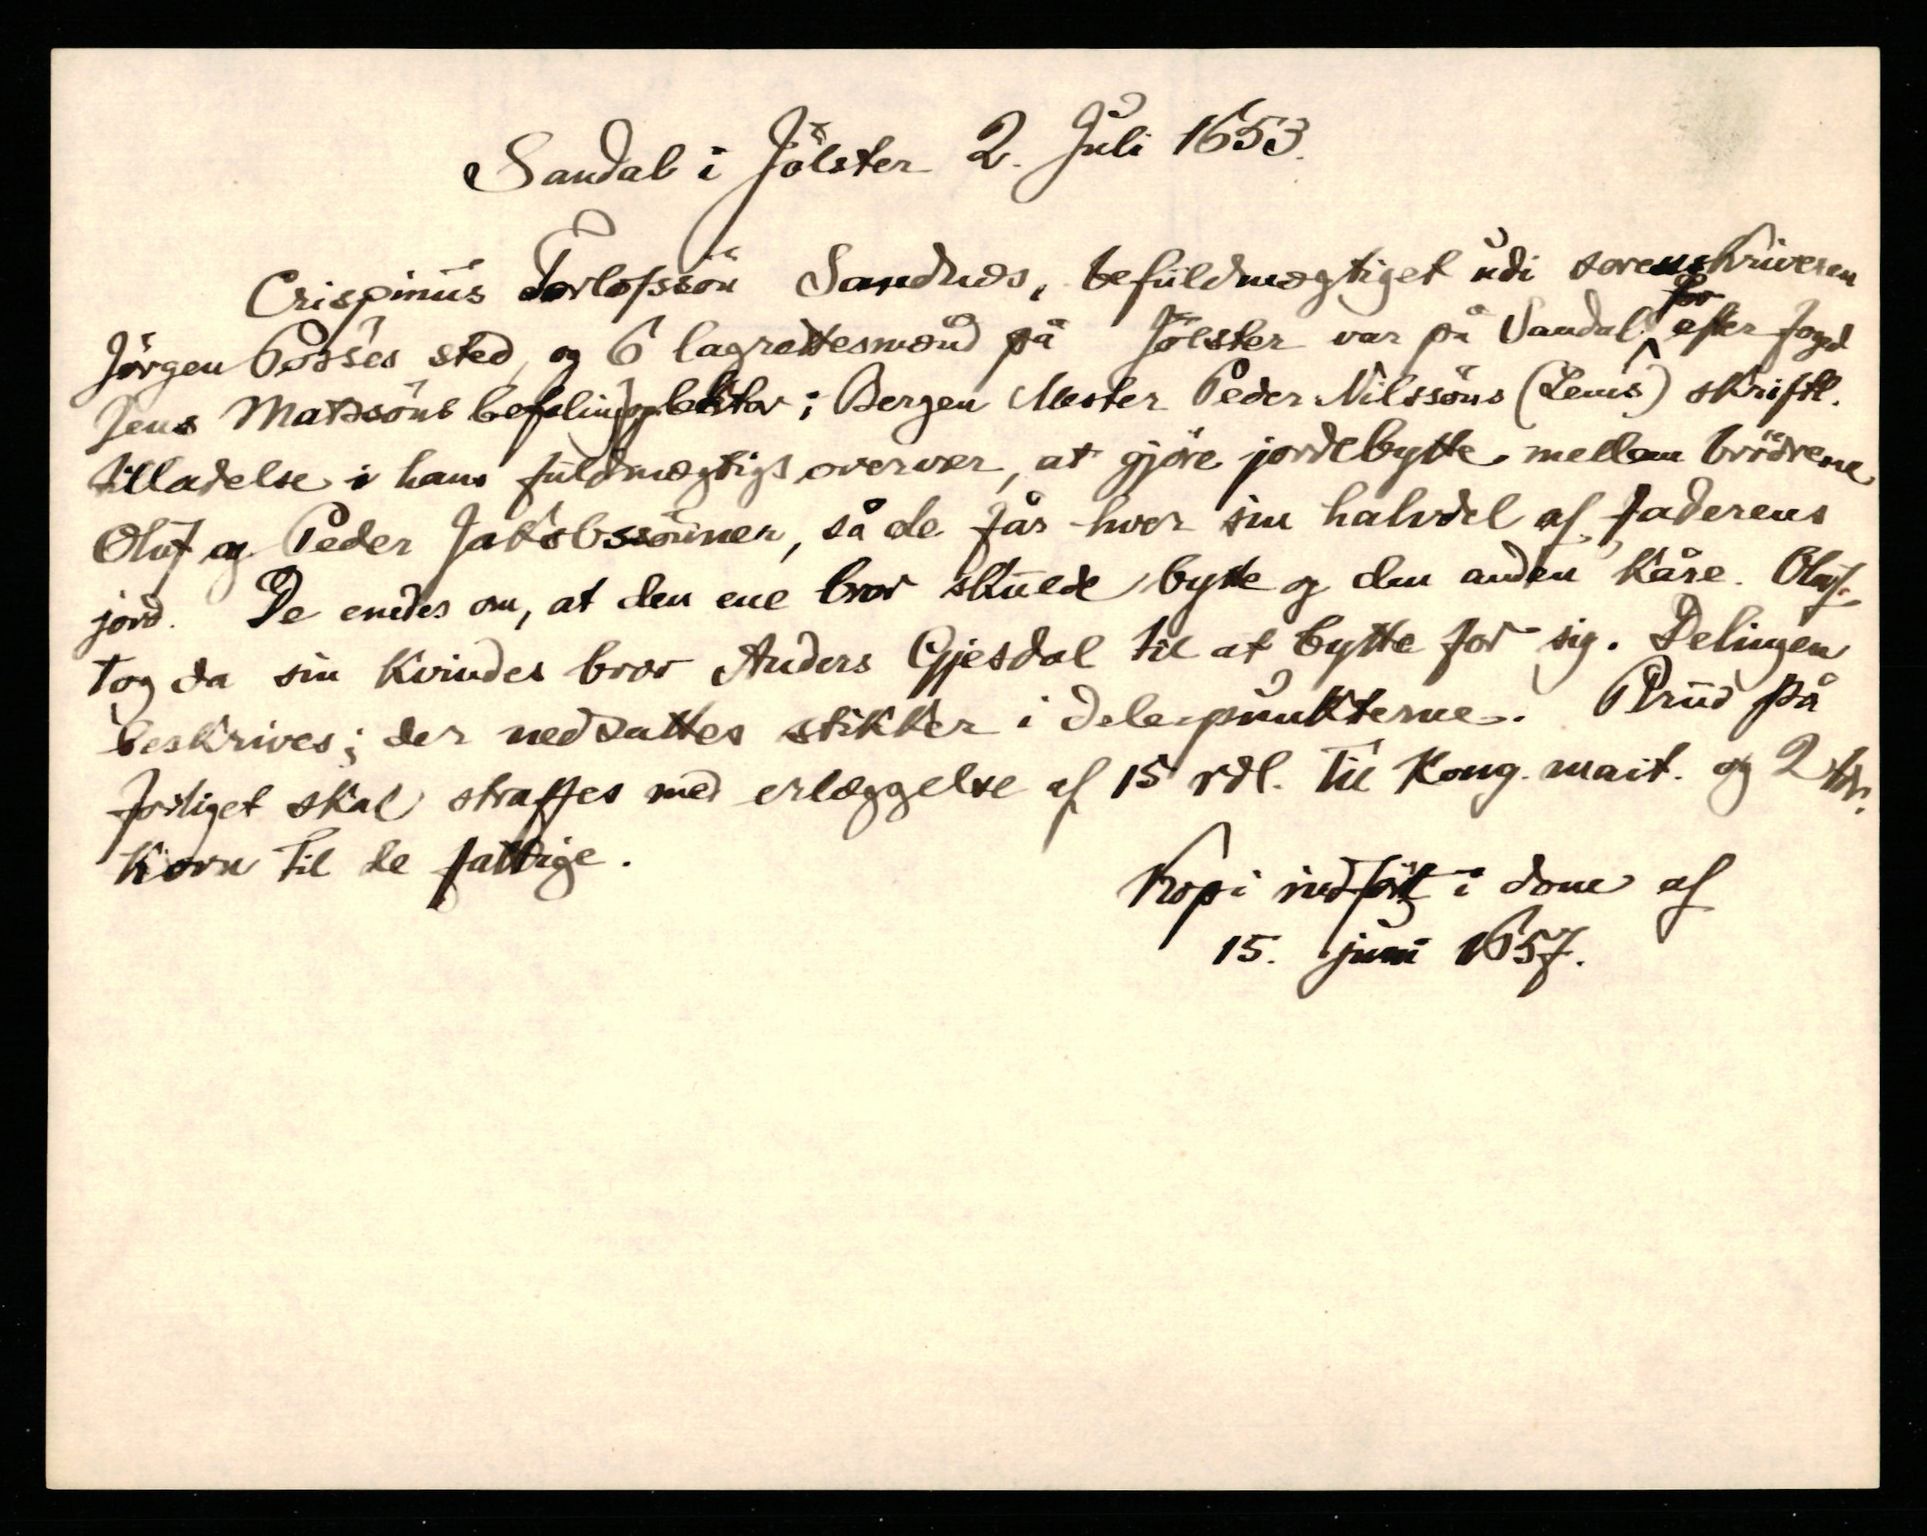 Sandal i Jölster 2. Juli 1653.
Crispinus Torlofssön Sandnæs, befuldmægtiget udi sorenskriveren
Jörgen Posses sted, og 6 lagrettesmænd på Jölster var på Sandal for efter foged
Jens Matssöns befaling og lektor i Bergen Mester Peder Nilssöns skriftl.
tilladelse i hans fuldmægtigs overvær, at gjöre jordebytte mellem brödrene
Oluf og Peder Jakobssönner, så de får hver sin halvdel af faderens
jord. De endes om, at den ene bror skulde bytte og den anden kåre. Oluf
tog da sin kvindes bror Anders Gjesdal til at bytte for sig. Delingen
beskrives; der nedsattes stikker i delepunkterne. Brud på
forliget skal straffes med erlæggelse af 15 rdl. til Kong. mait. og 2 tdr.
korn til de fattige.
Kopi indfört i dom af
15. juni 1657.